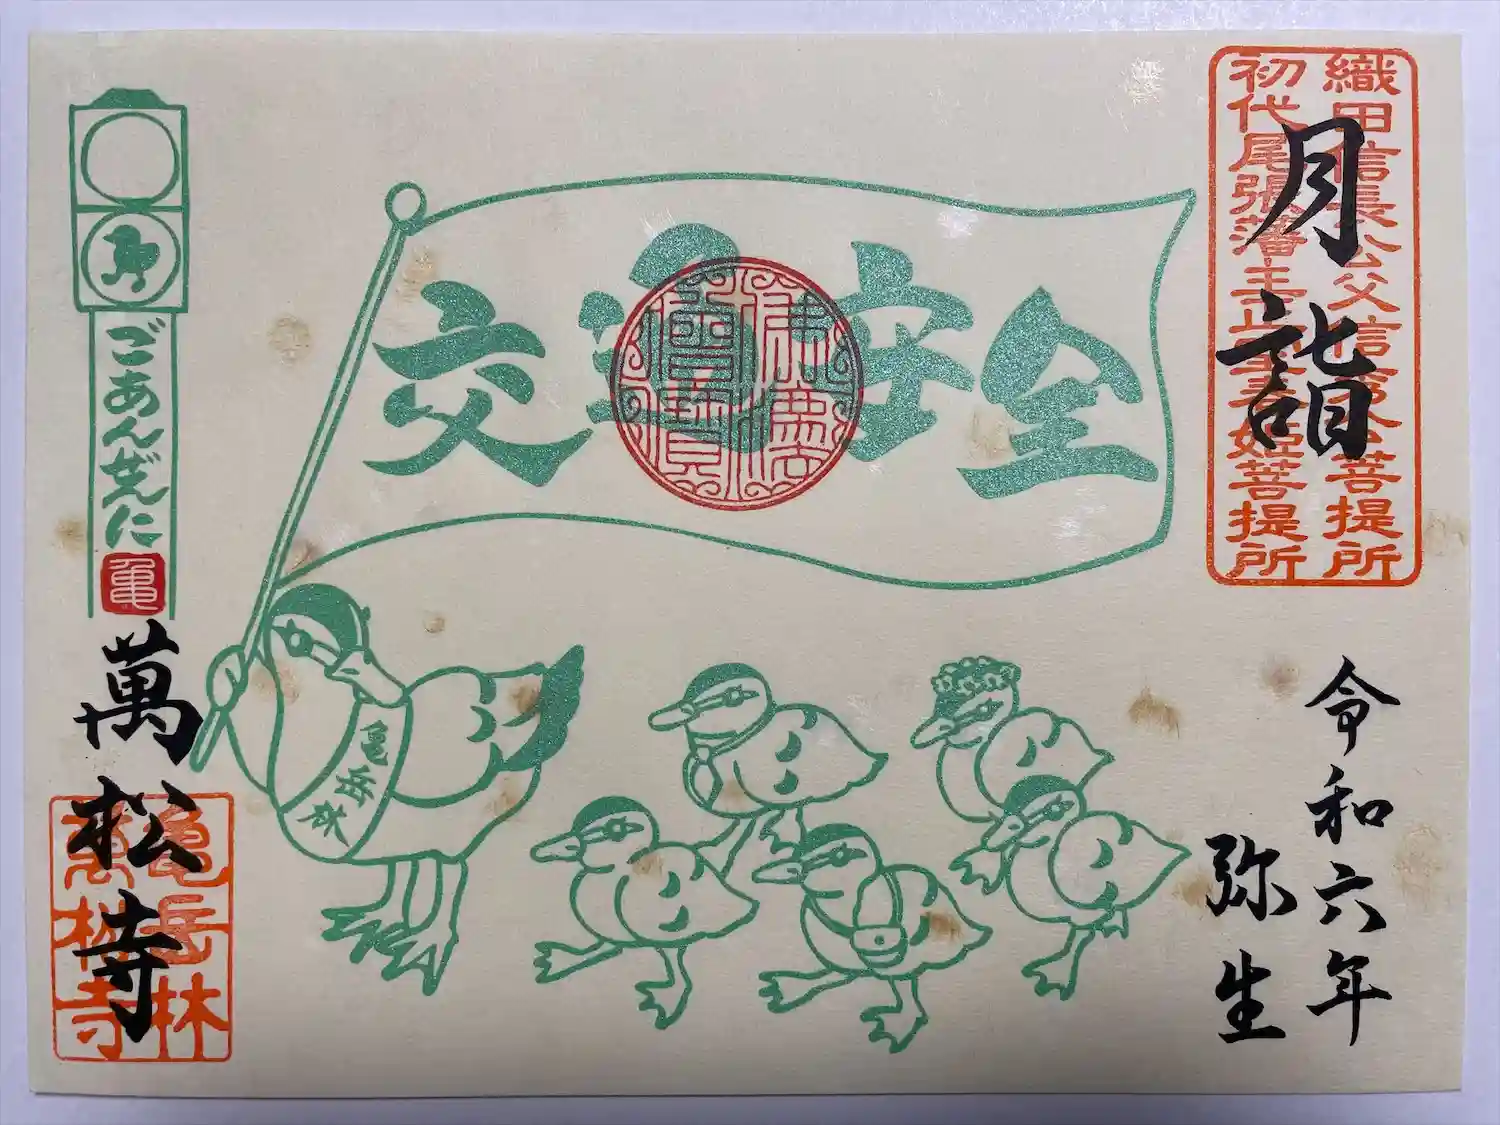 織田信長公父信秀公菩提所
初代尾張藩主正室春姫菩提所
月詣
令和六年
弥生
交通安全
佛法
僧寶
ごあんぜんに
亀
亀岳林
萬松寺
亀岳林
萬松寺